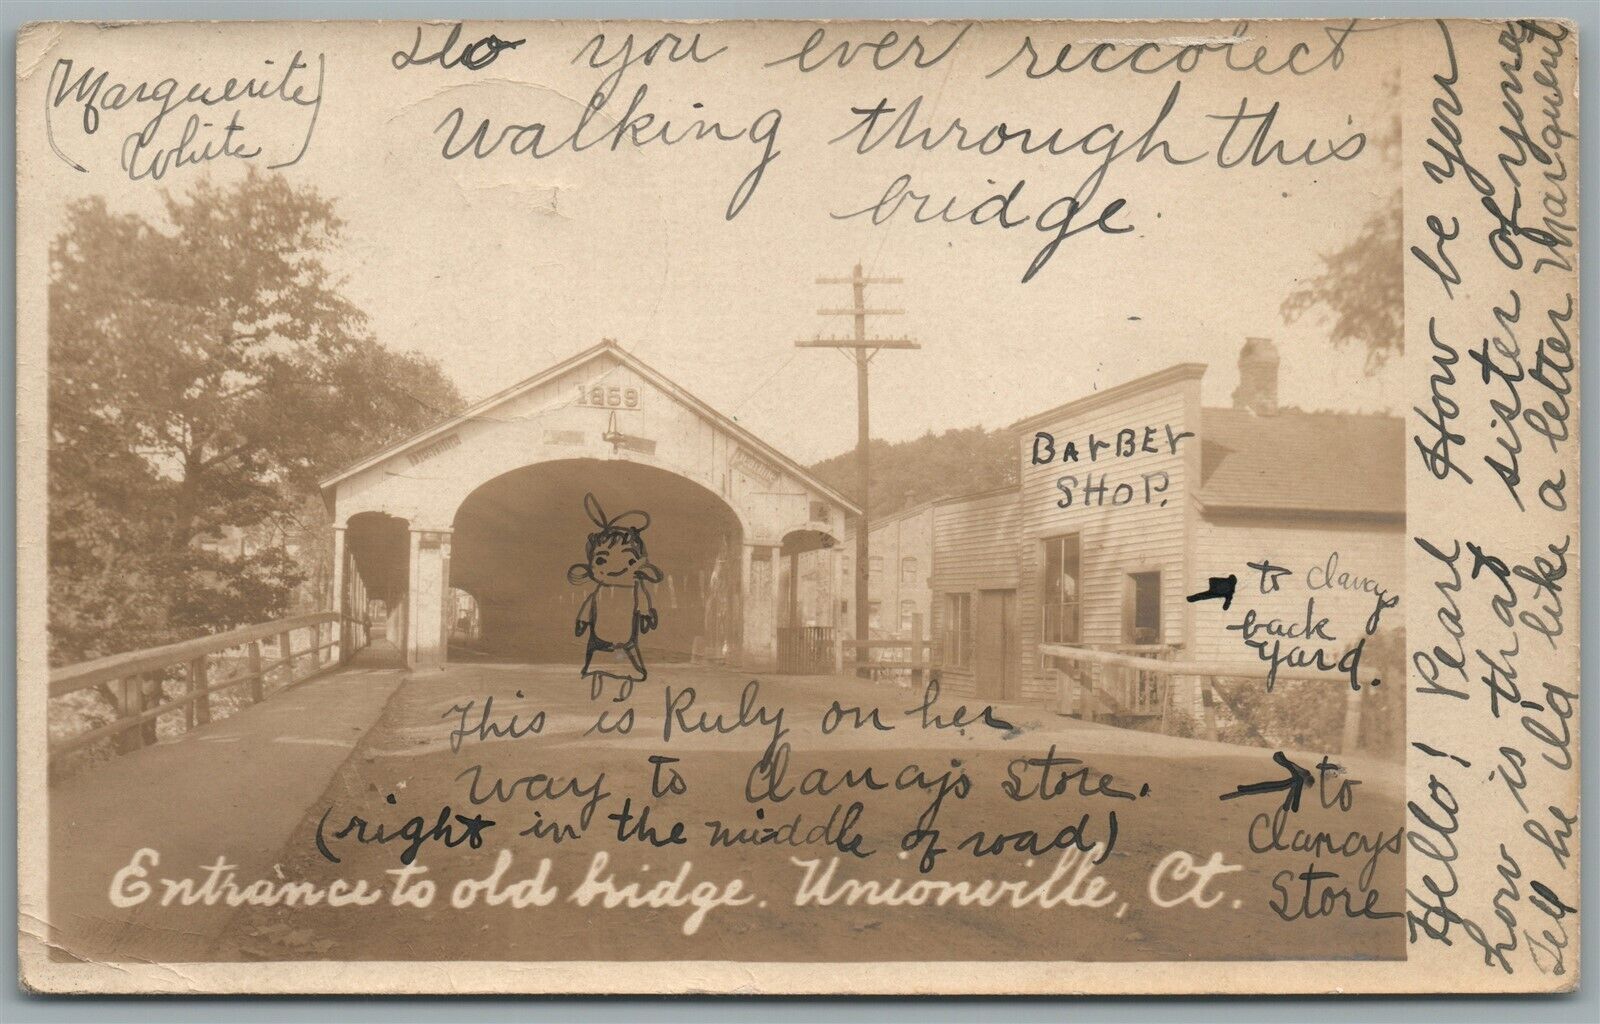 (Marguerite
White)
Do you ever reccolect
walking through this
bridge.
1869
BArBEr
SHOP.
to Clancys
back
yard.
This is Ruby on her
way to Clancys Store.
(right in the middle of road)
to
Clancys
Store
Entrance to old bridge. Unionville, Ct.
Hello! Pearl How be you
how is that sister of yours
Tell he I'd like a letter Marguerite